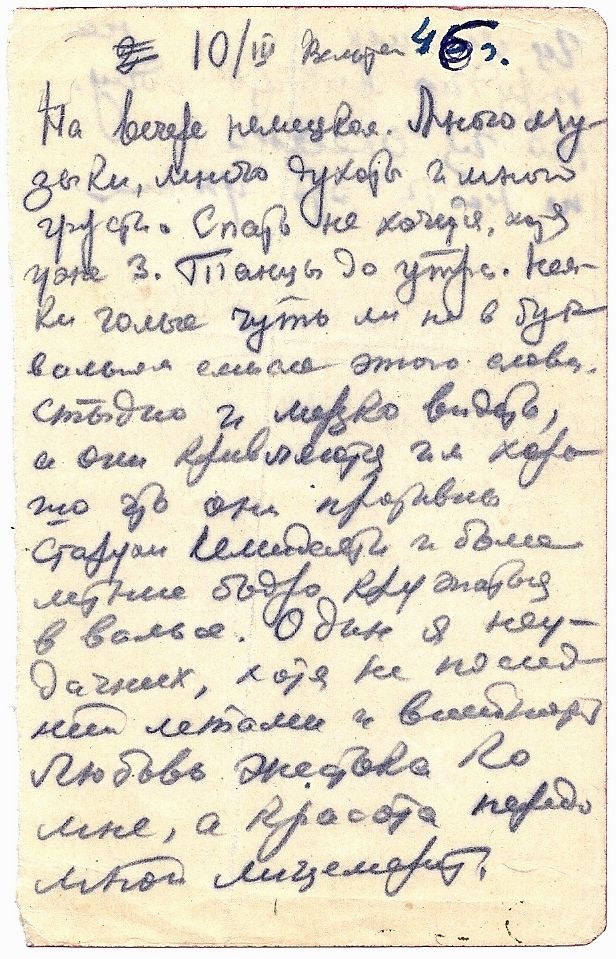 10/III Вельтен 46 г.
На вечере немецком. Много му-
зыки, много духоты и много
грусти. Спать не хочется, хотя
уже 3. Танцы до утра. Нем-
ки голые чуть ли не в бук-
вальном смысле этого слова.
Стыдно и мерзко видеть,
а они кривляются им хоро-
шо что они противны
Старухи семидесяти и более
летние бодро кружаться
в вальсе. Один я неу-
дачник, хотя не послед-
ний летами и внешностью
Любовь жестока ко
мне, а красота передо
мной лицемерит.